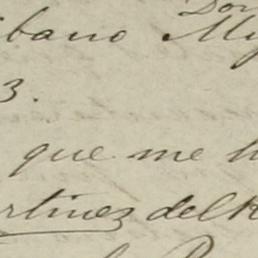 Don
ibano My
3.
que me h
rtinez del R